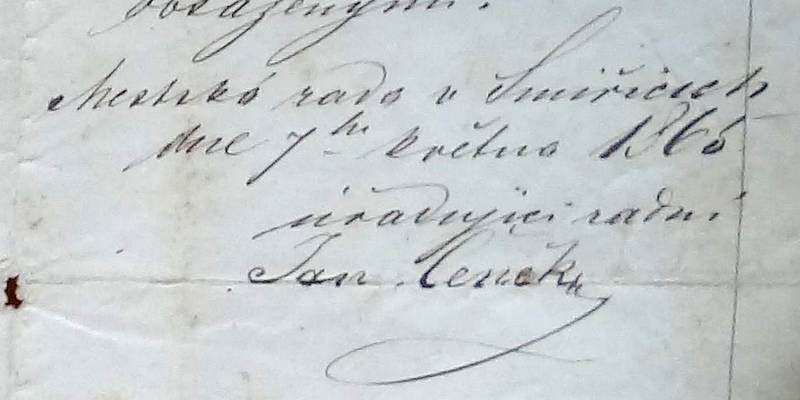 obsaženými.
Mestská rada v Smiřicích
dne 7ho května 1865
úřadující radní
Jan